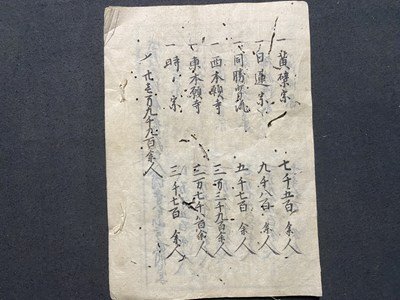 一黄檗宗 七千五百余人
一日蓮宗 九千八百余人
一同勝劣流 五千七百余人
一西本願寺 三万二千九百余人
一東本願寺 三万七千八百余人
一時宗 三千七百余人
百九十九百余人